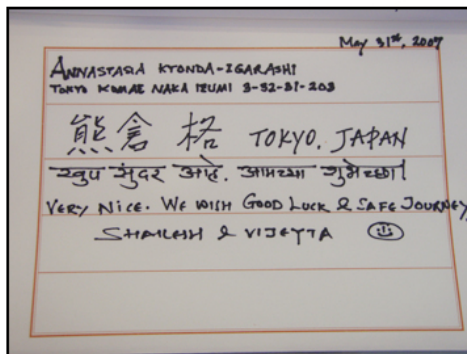 May 31st, 2007
ANNASTASIA KYONDA-IGARASHI
TOKYO KOMAE NAKA IZUMI 3-32-31-203
熊倉 格 TOKYO, JAPAN
खुप सुंदर आहे. आमच्या शुभेच्छा!
VERY NICE. WE WISH GOOD LUCK & SAFE JOURNEY,
SHAILESH & VIJEYTA